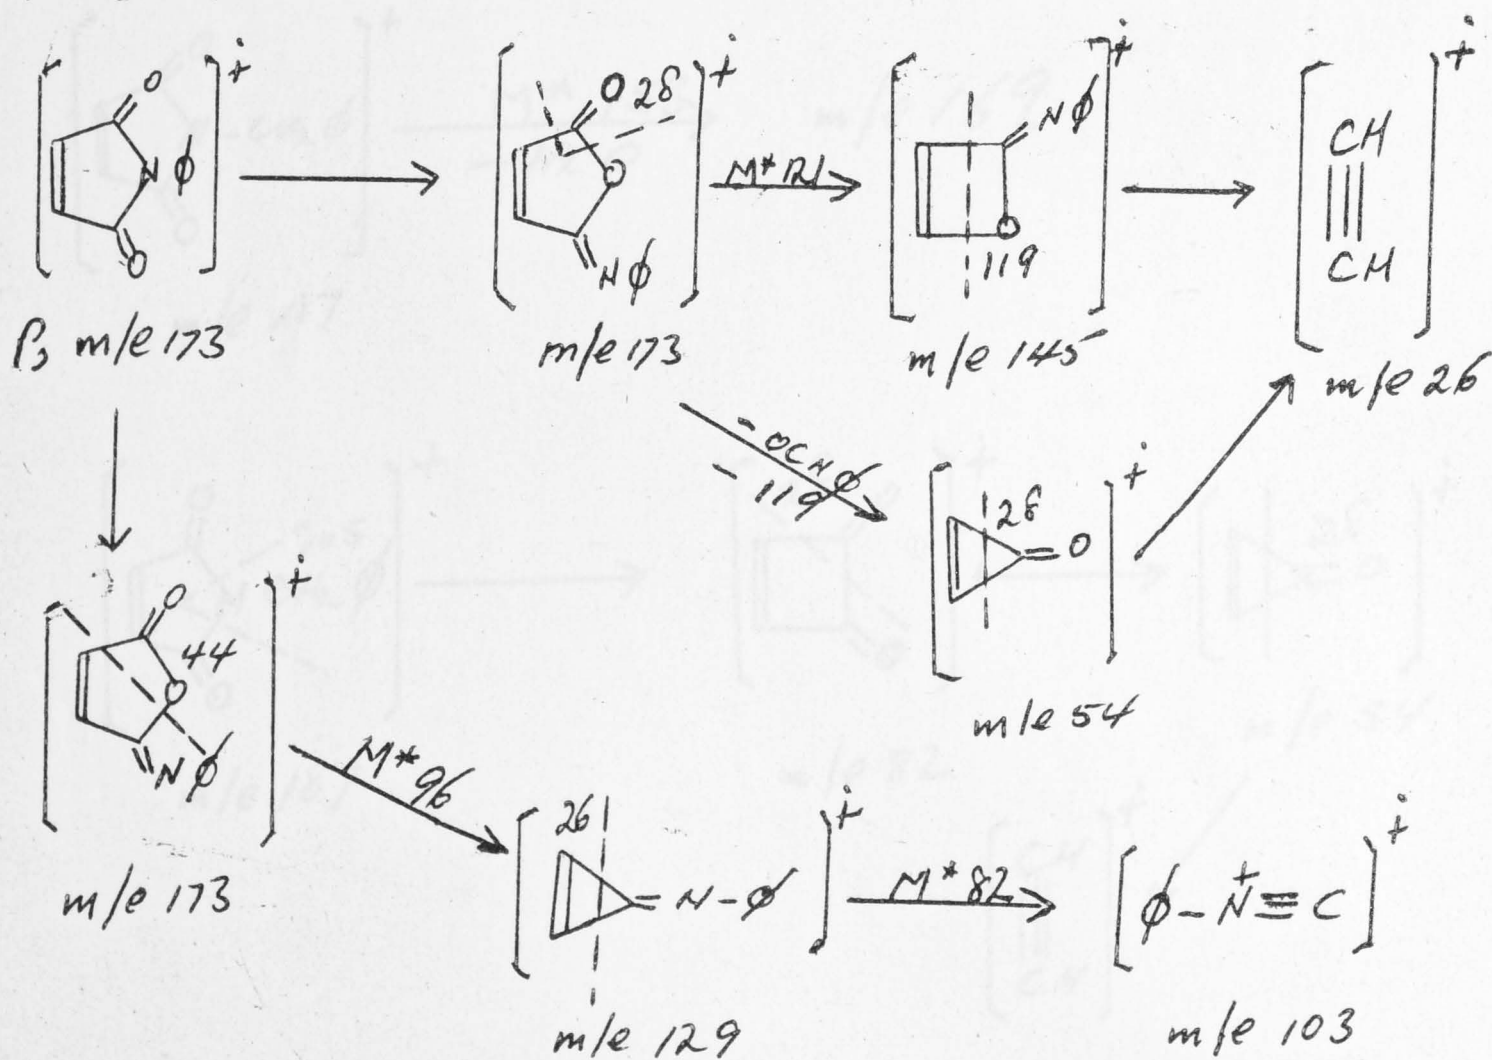 [ O N φ O ]+·
P, m/e 173
[ O 28 O Nφ ]+·
m/e 173
M* 121
[ Nφ O 119 ]+·
m/e 145
[ CH ≡ CH ]+·
m/e 26
- OCNφ
- 119
[ 28 =O ]+·
m/e 54
[ O 44 O Nφ ]+·
m/e 173
M* 96
[ 26 =N-φ ]+·
m/e 129
M* 82
[ φ-N+≡C ]+·
m/e 103